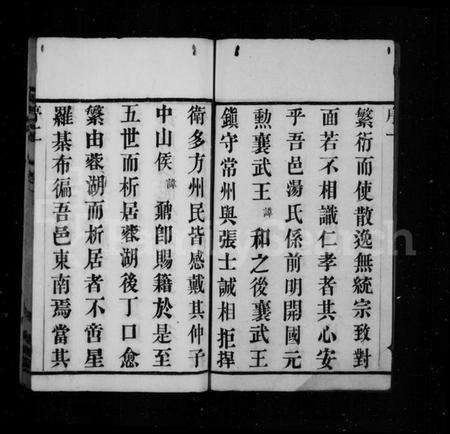 序一
繁衍而使散逸無統宗致對
面若不相識仁孝者其心安
乎吾邑湯氏係前明開國元
勲襄武王諱和之後襄武王
鎮守常州與張士誠相拒捍
衛多方州民皆感戴其仲子
中山侯諱䶮卽賜籍於是至
五世而析居蓉湖後丁口愈
繁由蓉湖而析居者不啻星
羅碁布徧吾邑東南焉當其
序二